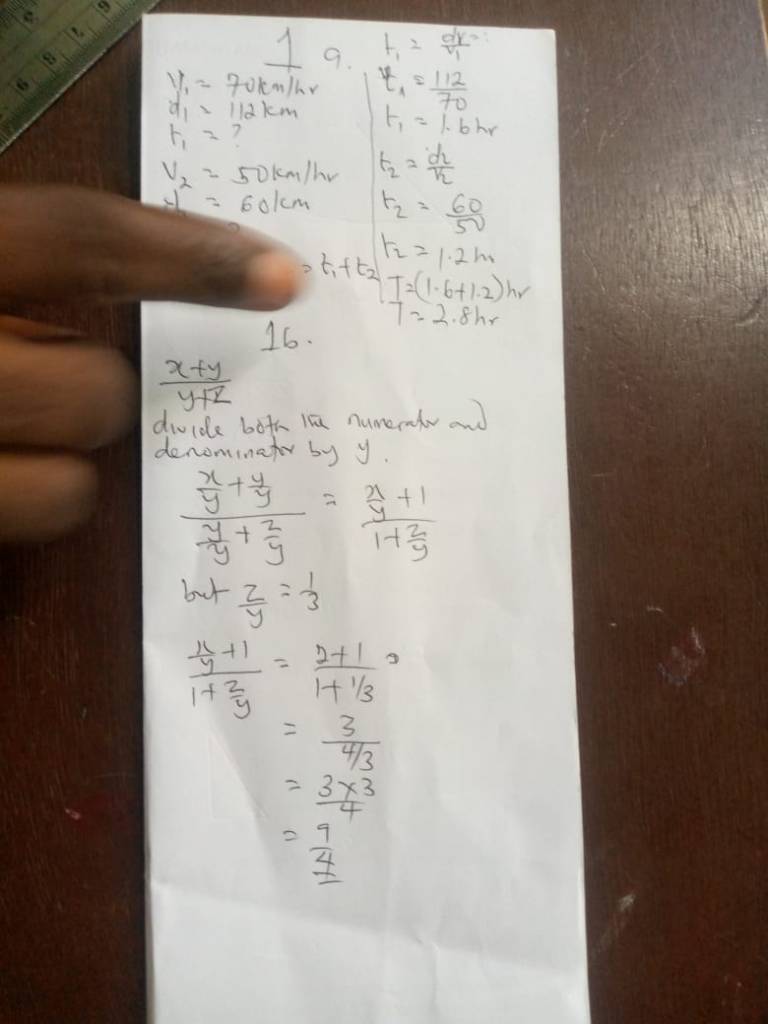 1 a.
V₁ = 70km/hr
d₁ = 112km
t₁ = ?
V₂ = 50km/hr
= 60km
= t₁ + t₂
t₁ =
t₁ = 112/70
t₁ = 1.6hr
t₂ = d₂/V₂
t₂ = 60/50
t₂ = 1.2hr
T = (1.6+1.2)hr
T = 2.8hr
16.
x+y/y+z
divide both the numerator and
denominator by y.
x/y + y/y / y/y + z/y = x/y + 1 / 1 + z/y
but z/y = 1/3
x/y + 1 / 1 + z/y = 2+1 / 1 + 1/3
= 3 / 4/3
= 3×3 / 4
= 9/4